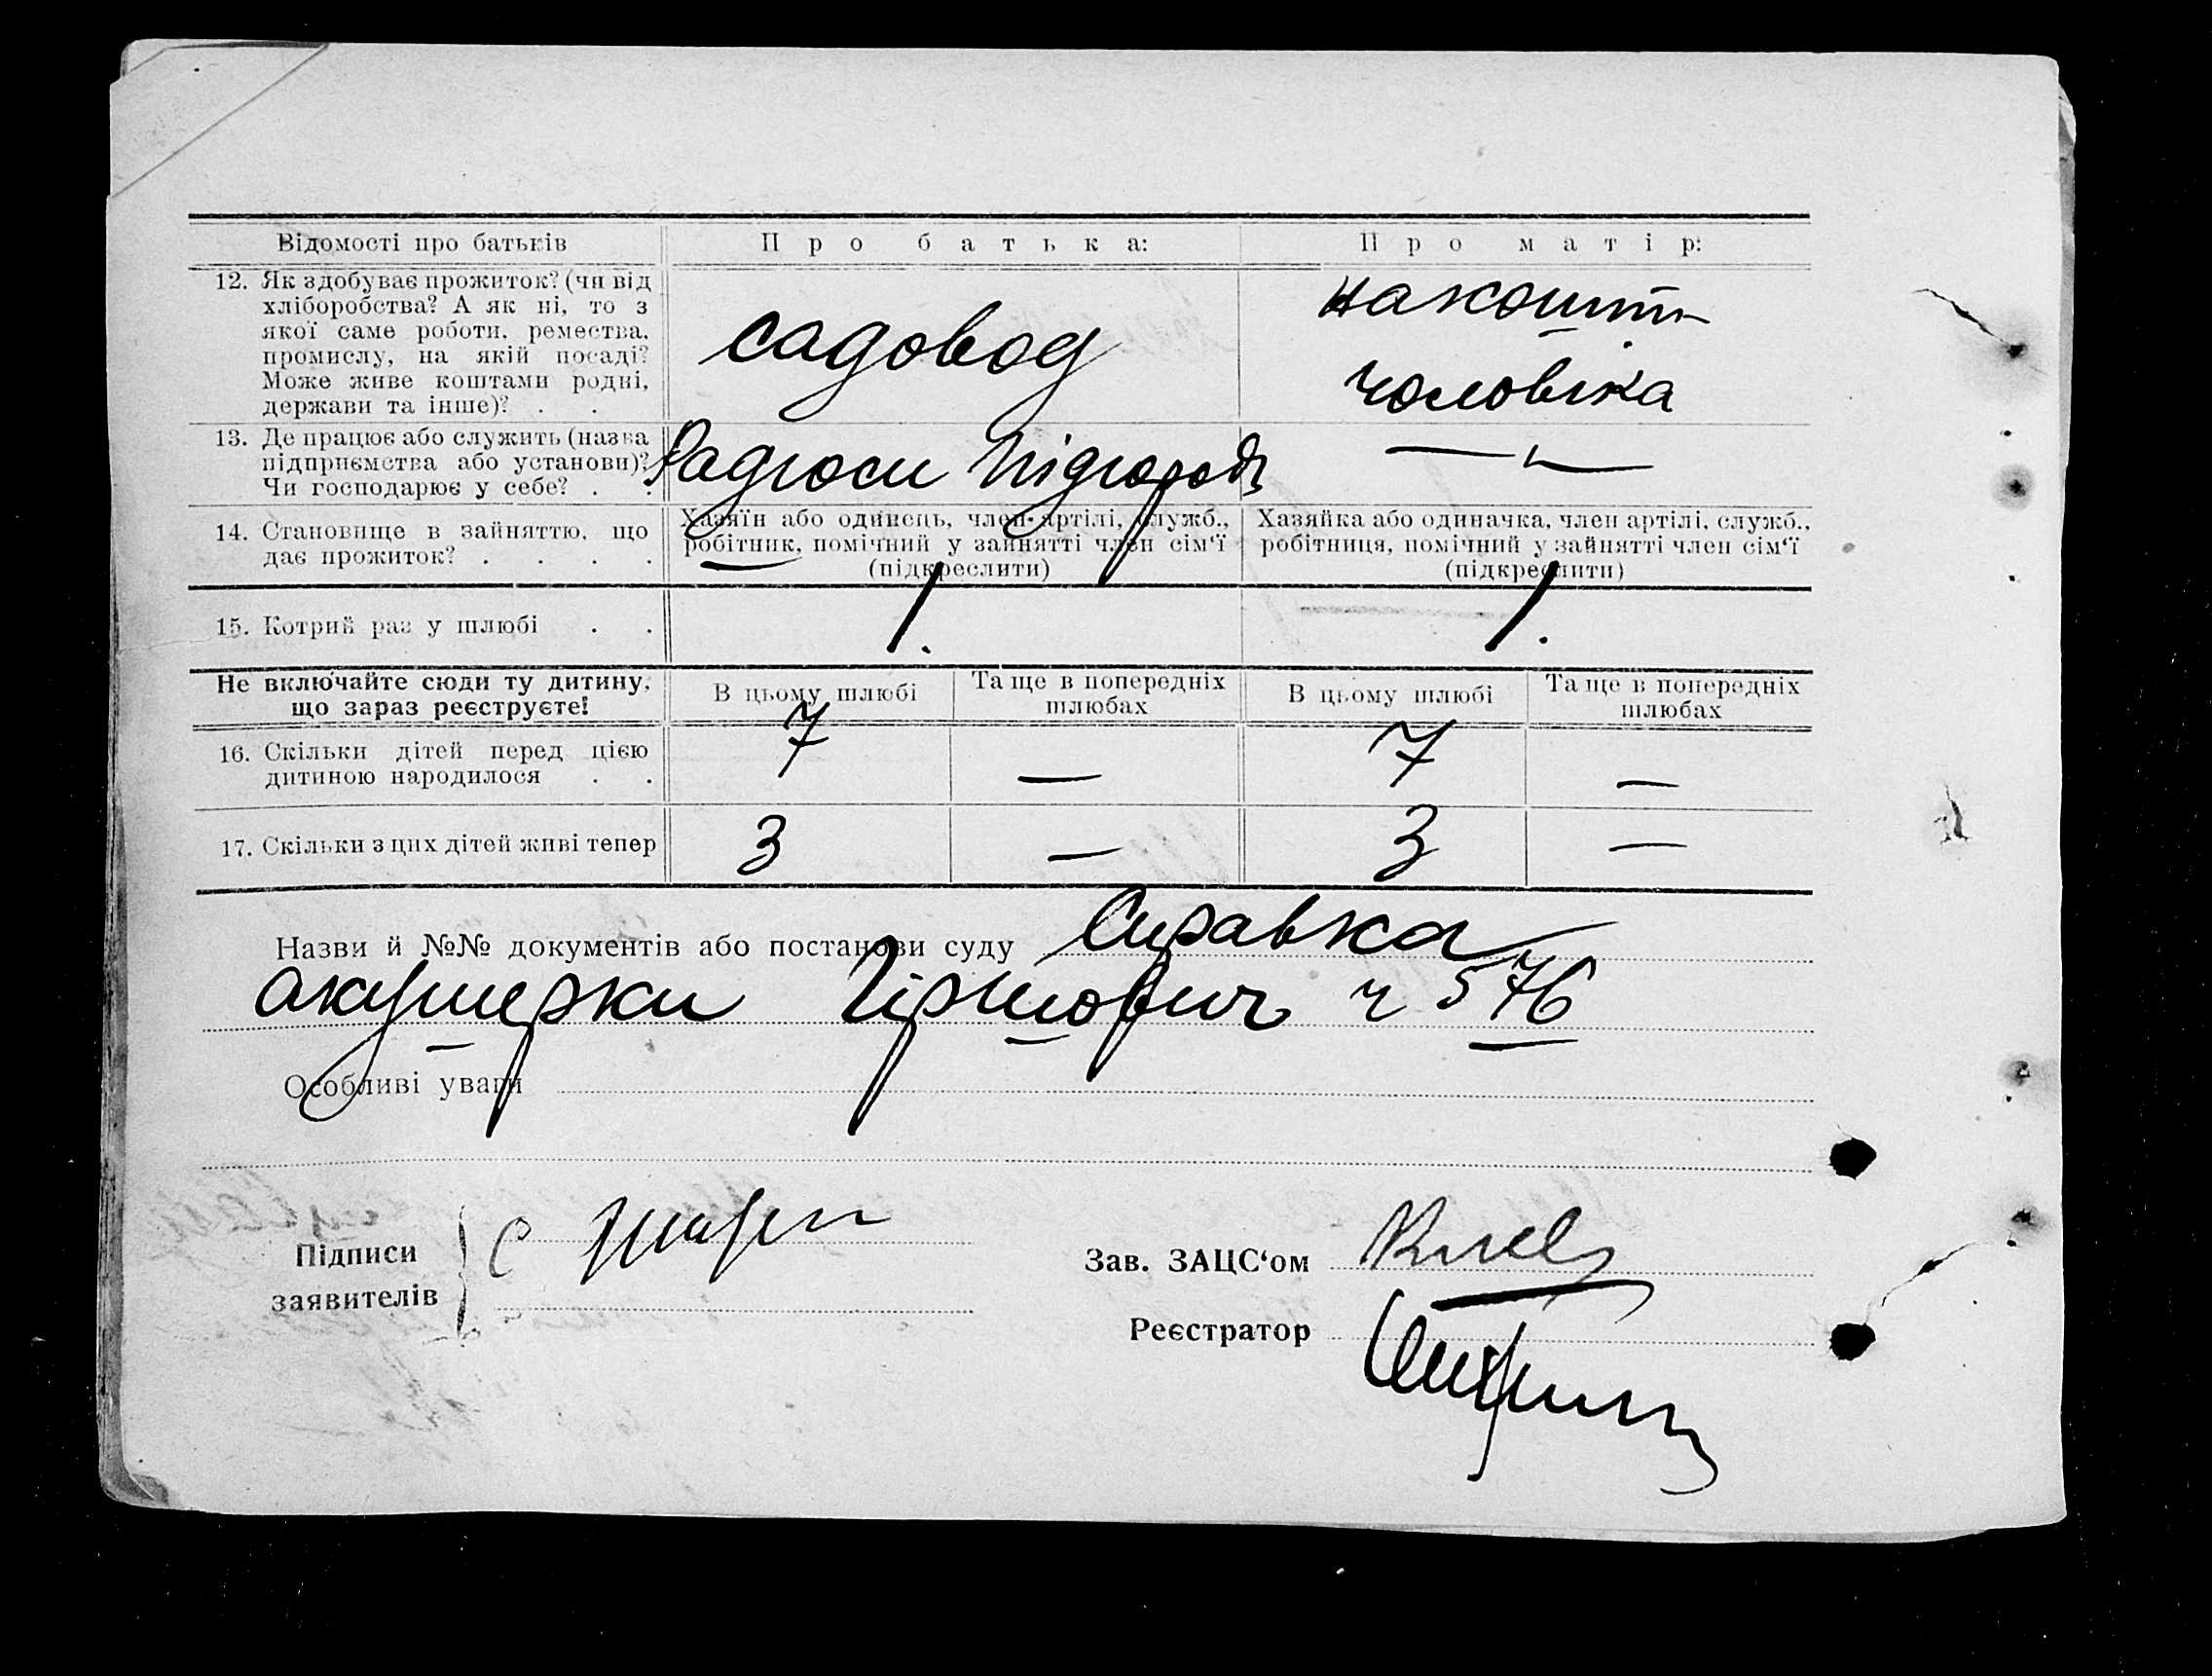 Відомості про батьків
П р о б а т ь к а:
П р о м а т і р:
12. Як здобуває прожиток? (чи від
хліборобства? А як ні, то з
якої саме роботи, ремества,
промислу, на якій посаді?
Може живе коштами родні,
держави та інше)? . .
садовод
на кошти
чоловіка
13. Де працює або служить (назва
підприємства або установи)?
Чи господарює у себе? . .
— „ —
14. Становище в зайняттю, що
дає прожиток? . . . .
Хазяїн або одинець, член артілі, служб.,
робітник, помічний у зайнятті член сім‘ї
(підкреслити)
Хазяйка або одиначка, член артілі, служб.,
робітниця, помічний у зайнятті член сім‘ї
(підкреслити)
15. Котрий раз у шлюбі . .
1.
1.
Не включайте сюди ту дитину,
що зараз реєструєте!
В цьому шлюбі
Та ще в попередніх
шлюбах
В цьому шлюбі
Та ще в попередніх
шлюбах
16. Скільки дітей перед цією
дитиною народилося . .
7
—
7
—
17. Скільки з цих дітей живі тепер
3
—
3
—
Назви й №№ документів або постанови суду Справка
акушерки Гіршович ч 576
Особливі уваги
Підписи
заявителів
Зав. ЗАЦС‘ом
Реєстратор